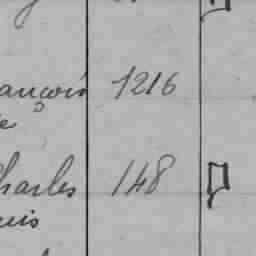 ançois 1216
e
harles 148
uis